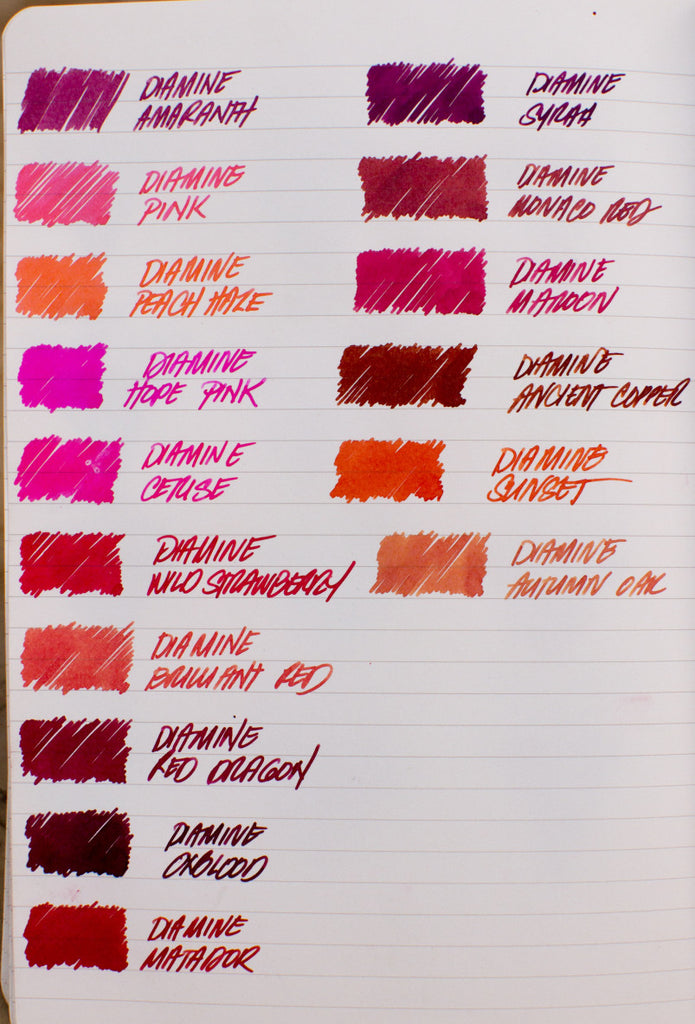 DIAMINE
AMARANTH
DIAMINE
PINK
DIAMINE
PEACH HAZE
DIAMINE
HOPE PINK
DIAMINE
CERISE
DIAMINE
WILD STRAWBERRY
DIAMINE
BRILLIANT RED
DIAMINE
RED DRAGON
DIAMINE
OXBLOOD
DIAMINE
MATADOR
DIAMINE
SYRAH
DIAMINE
MONACO RED
DIAMINE
MAROON
DIAMINE
ANCIENT COPPER
DIAMINE
SUNSET
DIAMINE
AUTUMN OAK